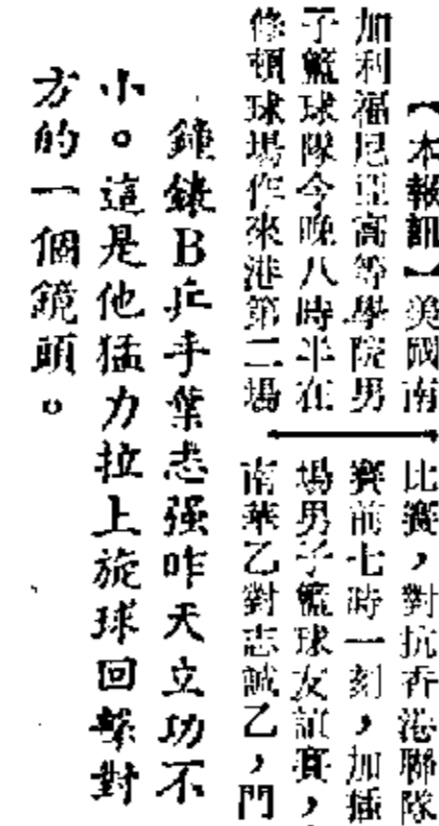 【本報訊】美國南
加利福尼亞高等學院男
子籃球隊今晚八時半在
修頓球場作來港第二場
比賽，對抗香港聯隊
賽前七時一刻，加插
場男子籃球友誼賽，
南華乙對志誠乙，門
鐘錶B乒手葉志强昨天立功不
小。這是他猛力拉上旋球回擊對
方的一個鏡頭。